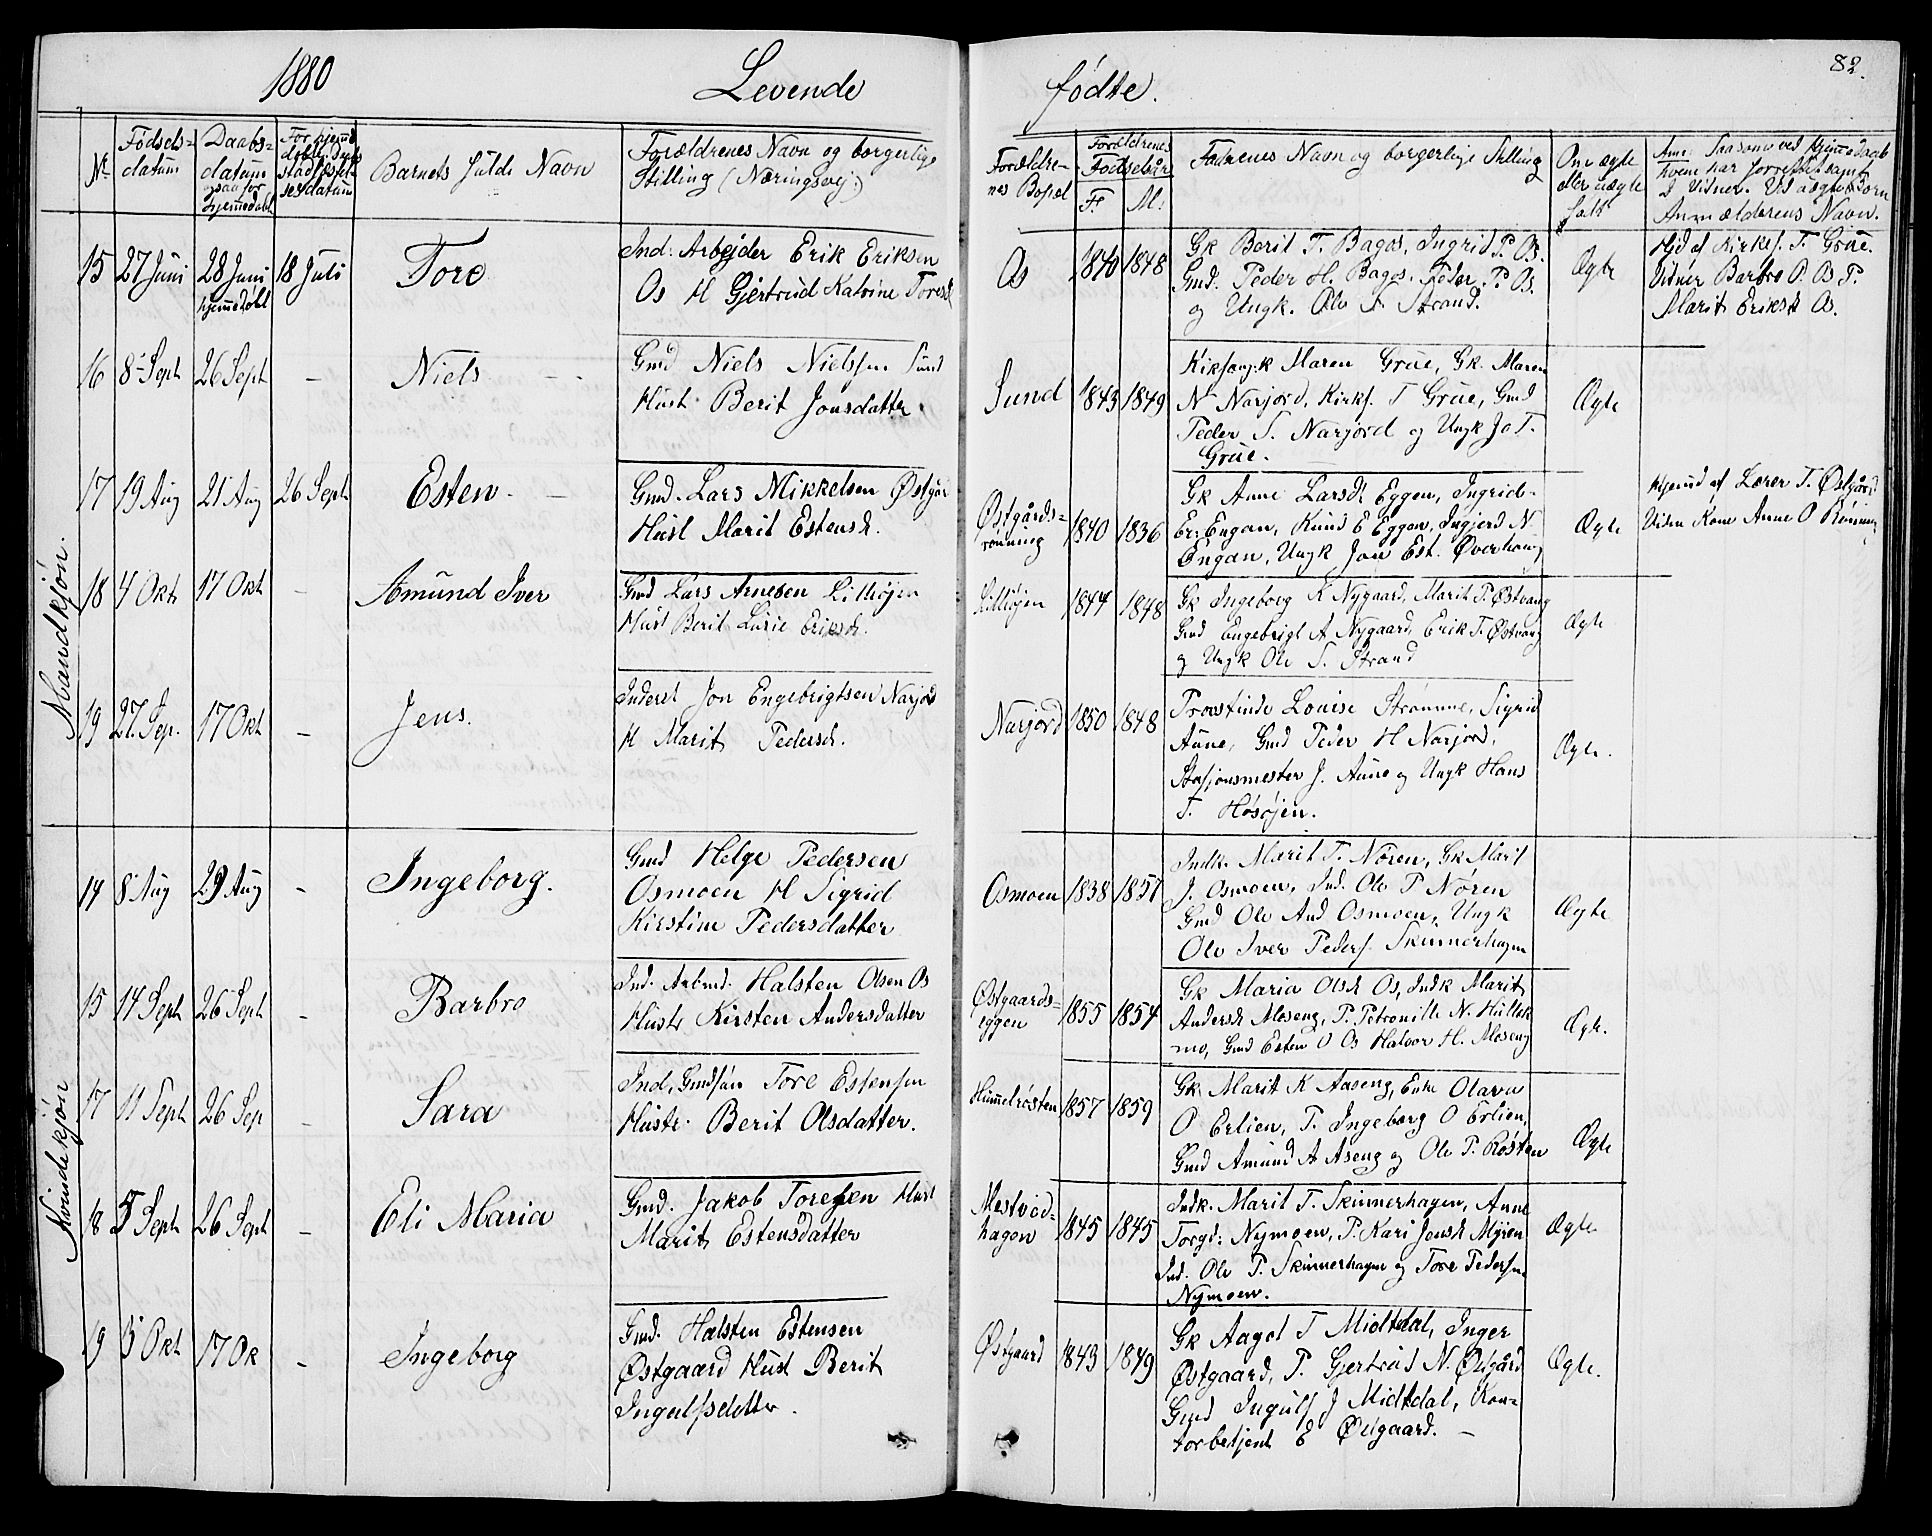 1880 Levende
No
Fødsels=
datum
Daabs-
datum
ogsaa for
hjemmedøbt
For hjemmedøbte Børn
Stadfæstel-
sesdatum
Barnets fulde Navn
Forældrenes Navn og borgerlige
Stilling (Næringsvej.)
Mandkjøn.
15 27 Juni 28 Juni 18 Juli Tore
hjemmedøbt
Ind. Arbejder Erik Eriksen
Os H Gjertrud Katrine Toresd
16 8 Sept 26 Sept – Niels
Gmd Niels Nielsen Sund
Hust. Berit Jonsdatter
17 19 Aug 21 Aug 26 Sept Esten
Gmd. Lars Mikkelsen Østgår
Hust Marit Estensd.
18 4 Okt 17 Okt – Amund Iver
Gmd Lars Arnesen Lilløjen
Hust Berit Lusie Eriksd.
19 27. Sep. 17 Okt – Jens.
Inderst Jon Engebrigtsen Narjord
H Marit Pedersd.
Kvindekjøn
14 8 Aug 29 Aug – Ingeborg.
Gmd Helge Pedersen
Osmoen H Sigrid
Kirstine Pedersdatter
15 14 Sept 26 Sept – Barbro
Ind. Arbmd. Halsten Olsen Os
Hustr Kirsten Andersdatter
17 11 Sept 26 Sep – Sara
Ind. Gmdsøn Tore Estensen
Hustr. Berit Olsdatter.
18 5 Sept 26 Sept – Eli Maria
Gmd. Jakob Toresen Hust
Marit Estensdatter
19 5 Okt 17 Ok – Ingeborg
Gmd. Halsten Estensen
Østgaard Hust Berit
Ingulfsdatter.
82.
fødte.
Forældre-
nes Bopæl
Forældrenes
Fødselsår
F. M.
Fadrenes Navn og borgerlige Stilling
Om ægte
eller uægte
født
Anm: Saasom ved hjemmedaab
hvem har forrettet samt
2 Vidner. Ved uægte Børn
Anmælderens Navn.
Os 1840 1848
Gk Berit T. Bagos, Ingrid P. Os.
Gmd. Peder H. Bagos, Peder P. Os.
og Ungk. Ole T Strand.
Ægte
Hjd af Kirkes. T. Grue.
Vidner Barbro P. Os P.
Marit Eriksd Os.
Sund 1843 1849
Kirksang.k Maren Grue, Gk. Maren
N Narjord, Kirks. T Grue, Gmd
Peder S. Narjord og Ungk Jo T.
Grue.
Ægte
Østgårds=
rønning 1840 1836
Gk Anne Larsd Eggen, Ingrid
Er. Engan, Knud E Eggen, Ingjerd N.
Engan, Ungk Jon Est. Øverhaug
Ægte
Hjemd af Lærer T. Østgård
Vidn Kone Anne O Rønning
Lilløjen 1844 1848
Gk Ingeborg K Nygaard, Marit P. Østvang
Gmd Engebrigt A Nygaard, Erik T. Østvang
og Ungk Ole S. Strand
Ægte
Narjord 1850 1848
Provstinde Louise Strømme, Sigrid
Aune, Gmd Peder H Narjord,
Stasjonsmester J. Aune og Ungk Hans
T. Høsøjen.
Ægte.
Osmoen 1838 1857
Indk. Marit T. Nøren, Gk Marit
J. Osmoen, Ind. Ole P Nøren
Gmd Ole And Osmoen, Ungk
Ole Iver Peders. Skinnerhagen
Ægte
Østgaards=
eggen 1855 1854
Gk Maria Olsd Os, Indk Marit
Andersd Moseng, P. Petronille N. Hullek
mo, Gmd Esten O Os Halvor H. Moseng
Ægte.
Hummelrøsten 1857 1859
Gk. Marit K Aaseng, Enke Olava
O Erlien, P. Ingeborg O Erlien,
Gmd Amund A Aseng og Ole P. Røsten
Ægte
Mestvod=
hagen 1845 1845
Indk. Marit T. Skinnerhagen, Anne
Torgd: Nymoen, P. Kari Jensd Myren
Ind. Ole P. Skinnerhagen og Tore Pedersen
Nymoen.
Ægte
Østgaard 1843 1849
Gk Aagot T Midtdal, Inger
Østgaard, P. Gjertrud N. Østgård
Gmd Ingulf J Midtdal, Kon=
torbetjent E Østgaard. –
Ægte.